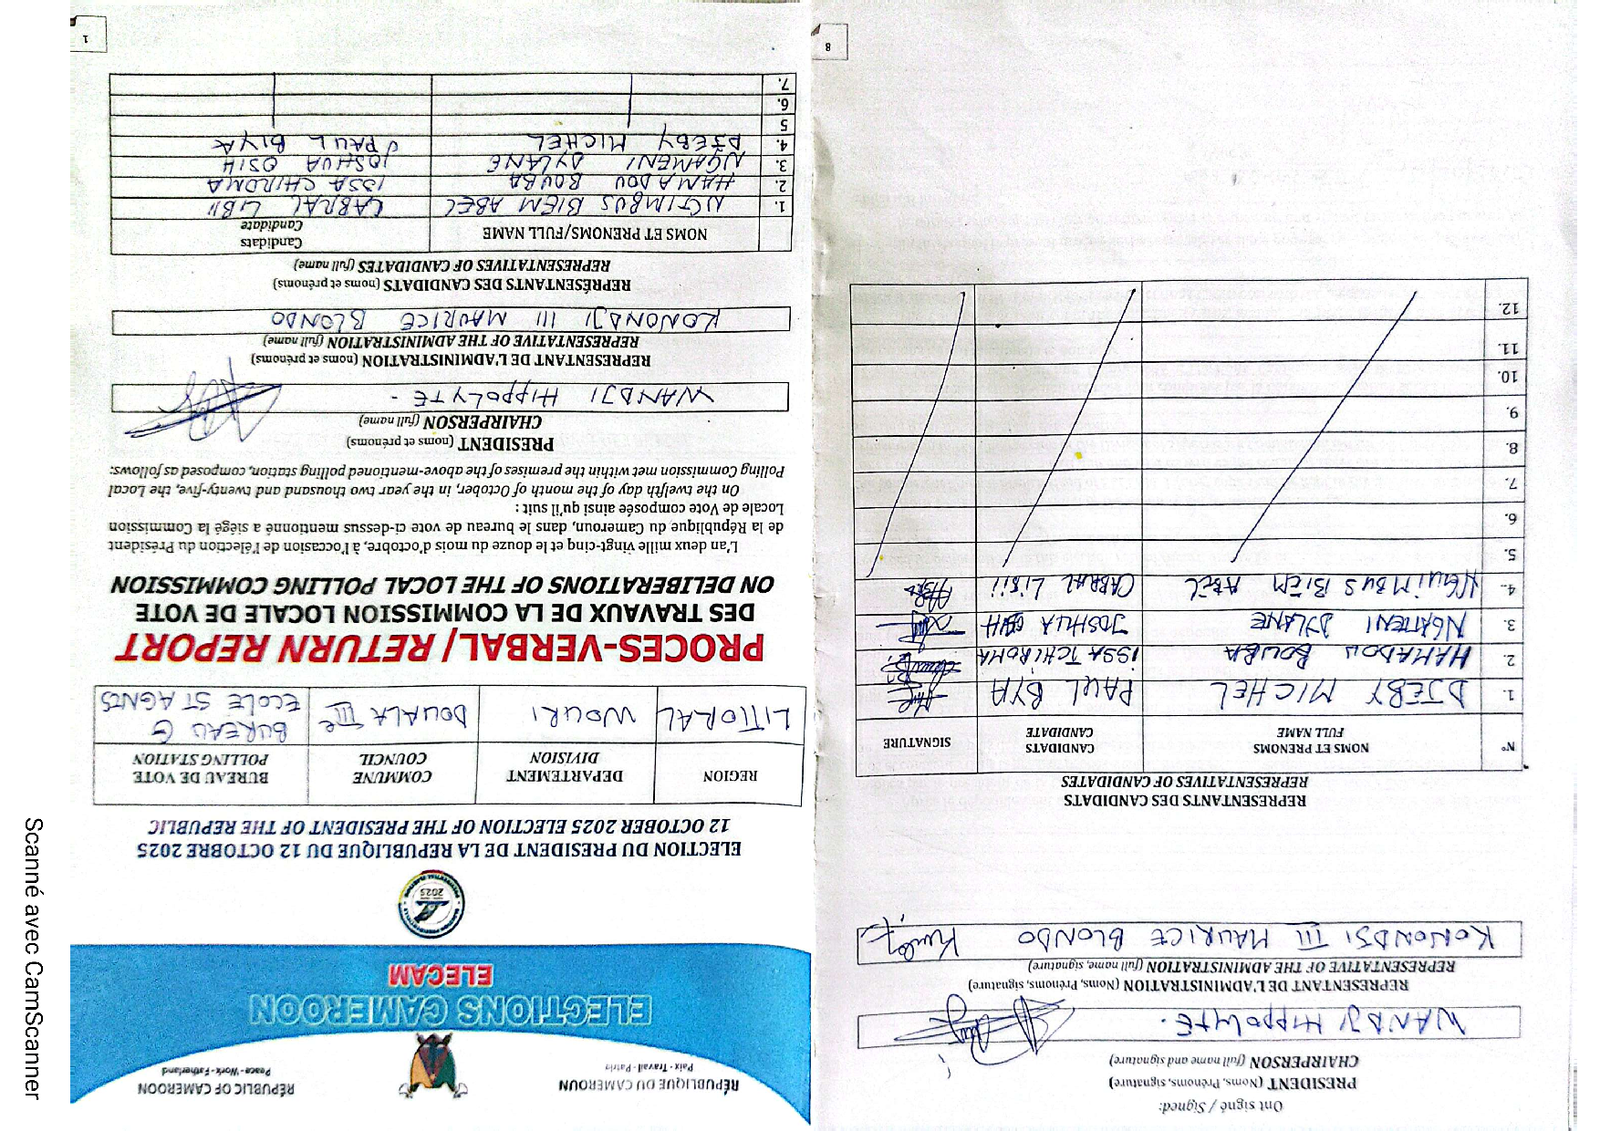 RÉPUBLIQUE DU CAMEROUN
Paix - Travail - Patrie
REPUBLIC OF CAMEROON
Peace - Work - Fatherland
ELECTIONS CAMEROON
ELECAM
2025
ELECTION DU PRESIDENT DE LA REPUBLIQUE DU 12 OCTOBRE 2025
12 OCTOBER 2025 ELECTION OF THE PRESIDENT OF THE REPUBLIC
REGION | DEPARTEMENT DIVISION | COMMUNE COUNCIL | BUREAU DE VOTE POLLING STATION
LITTORAL | WOURI | DOUALA IIIe | BUREAU G ECOLE ST AGNES
PROCES-VERBAL/ RETURN REPORT
DES TRAVAUX DE LA COMMISSION LOCALE DE VOTE
ON DELIBERATIONS OF THE LOCAL POLLING COMMISSION
L'an deux mille vingt-cinq et le douze du mois d'octobre, à l'occasion de l'élection du Président
de la République du Cameroun, dans le bureau de vote ci-dessus mentionné a siégé la Commission
Locale de Vote composée ainsi qu'il suit :
On the twelfth day of the month of October, in the year two thousand and twenty-five, the Local
Polling Commission met within the premises of the above-mentioned polling station, composed as follows:
PRESIDENT (noms et prénoms)
CHAIRPERSON (full name)
WANDJI HIPPOLYTE -
REPRESENTANT DE L'ADMINISTRATION (noms et prénoms)
REPRESENTATIVE OF THE ADMINISTRATION (full name)
KONONDJI III MAURICE BLONDO
REPRÉSENTANTS DES CANDIDATS (noms et prénoms)
REPRESENTATIVES OF CANDIDATES (full name)
NOMS ET PRENOMS/FULL NAME | Candidats Candidate
1. NGTIMBUS BIEM ABEL | CABRAL LIBII
2. HAMADOU BOUBA | ISSA CHIROMA
3. NGAMENI DYLANE | JOSHUA OSIH
4. DJEBY MICHEL | PAUL BIYA
5
6.
7.
1
Ont signé / Signed:
PRESIDENT (Noms, Prénoms, signature)
CHAIRPERSON (full name and signature)
WANDJI HIPPOLYTE.
REPRESENTANT DE L'ADMINISTRATION (Noms, Prénoms, signature)
REPRESENTATIVE OF THE ADMINISTRATION (full name, signature)
KONONDJI III MAURICE BLONDO
REPRESENTANTS DES CANDIDATS
REPRESENTATIVES OF CANDIDATES
N° | NOMS ET PRENOMS FULL NAME | CANDIDATS CANDIDATE | SIGNATURE
1. DJEBY MICHEL | PAUL BYA
2. HAMADOU BOUBA | ISSA TCHIROMA
3. NGAMENI DYLANE | JOSHUA OSIH
4. NGUIMBUS BIEM ABEL | CABRAL LIBII
5.
6.
7.
8
9.
10.
11.
12.
8
Scanné avec CamScanner